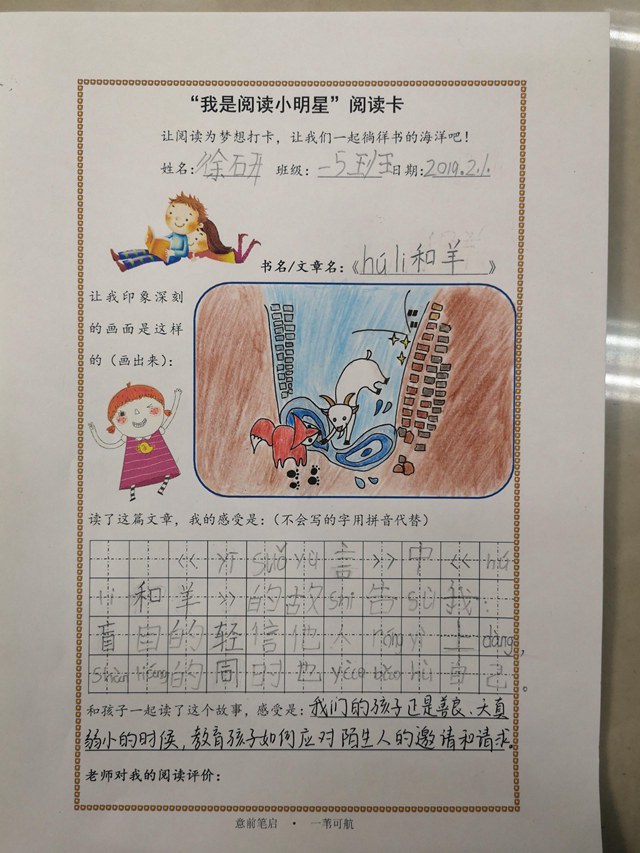 “我是阅读小明星”阅读卡
让阅读为梦想打卡，让我们一起徜徉书的海洋吧！
姓名：徐石研 班级：一5班 日期：2019.2.1.
书名/文章名：《hú li和羊》
让我印象深刻
的画面是这样
的（画出来）：
读了这篇文章，我的感受是：（不会写的字用拼音代替）
《yī suǒ yù言》中《hú
li和羊》的故shì告sù我：
盲目的轻信他人róng yì上dàng，
shàn liáng的同时也yào bǎo hù自己。
和孩子一起读了这个故事，感受是：我们的孩子正是善良、天真
弱小的时候，教育孩子如何应对陌生人的邀请和请求。
老师对我的阅读评价：
意前笔启 · 一苇可航